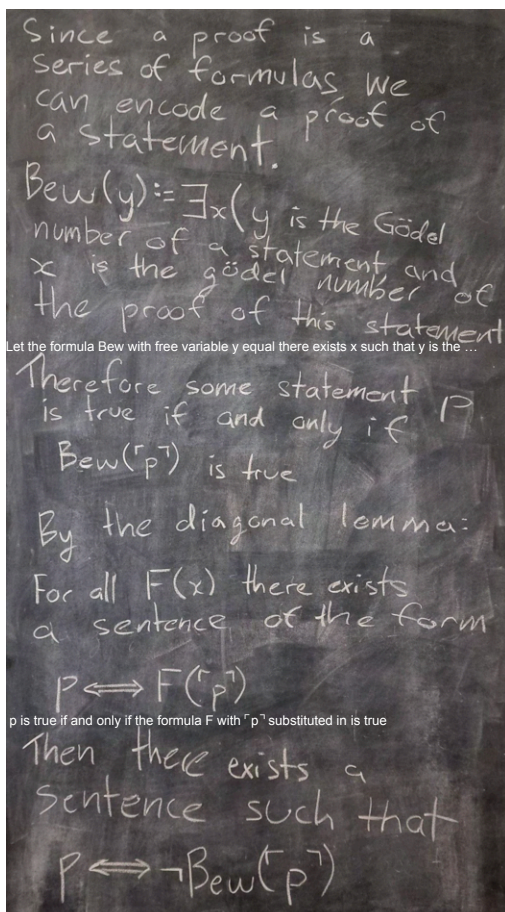 Since a proof is a
series of formulas we
can encode a proof of
a statement.
Bew(y):=∃x(y is the Gödel
number of a statement and
x is the gödel number of
the proof of this statement
Let the formula Bew with free variable y equal there exists x such that y is the ...
Therefore some statement P
is true if and only if
Bew(⌜p⌝) is true
By the diagonal lemma:
For all F(x) there exists
a sentence of the form
P⟺F(⌜p⌝)
p is true if and only if the formula F with ⌜p⌝ substituted in is true
Then there exists a
sentence such that
P⟺¬Bew(⌜p⌝)